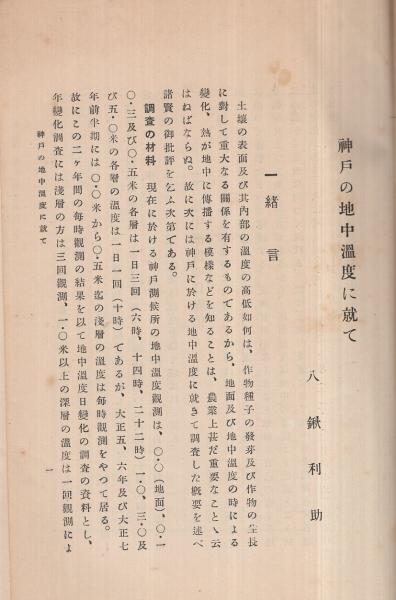 神戸の地中溫度に就て
八鍬利助
一緒言
土壤の表面及び其內部の溫度の高低如何は、作物種子の發芽及び作物の生長
に對して重大なる關係を有するものであるから、地面及び地中溫度の時による
變化、熱が地中に傳播する模樣などを知ることは、農業上甚だ重要なことゝ云
はねばならぬ。故に次には神戸に於ける地中溫度に就きて調査した槪要を述べ
諸賢の御批評を乞ふ次第である。
調査の材料 現在に於ける神戸測候所の地中溫度觀測は、〇・〇(地面)、〇・一
〇・三及び〇・五米の各層は一日三回(六時、十四時、二十二時)一・〇、三・〇及
び五・〇米の各層の溫度は一日一回(十時)であるが、大正五、六年及び大正七
年前半期には〇・〇米から〇・五米迄の淺層の溫度は每時觀測をやつて居る。
故にこの二ヶ年間の每時觀測の結果を以て地中溫度日變化の調査の資料とし、
年變化調査には淺層の方は三回觀測、一・〇米以上の深層の溫度は一回觀測によ
神戸の地中溫度に就て
一